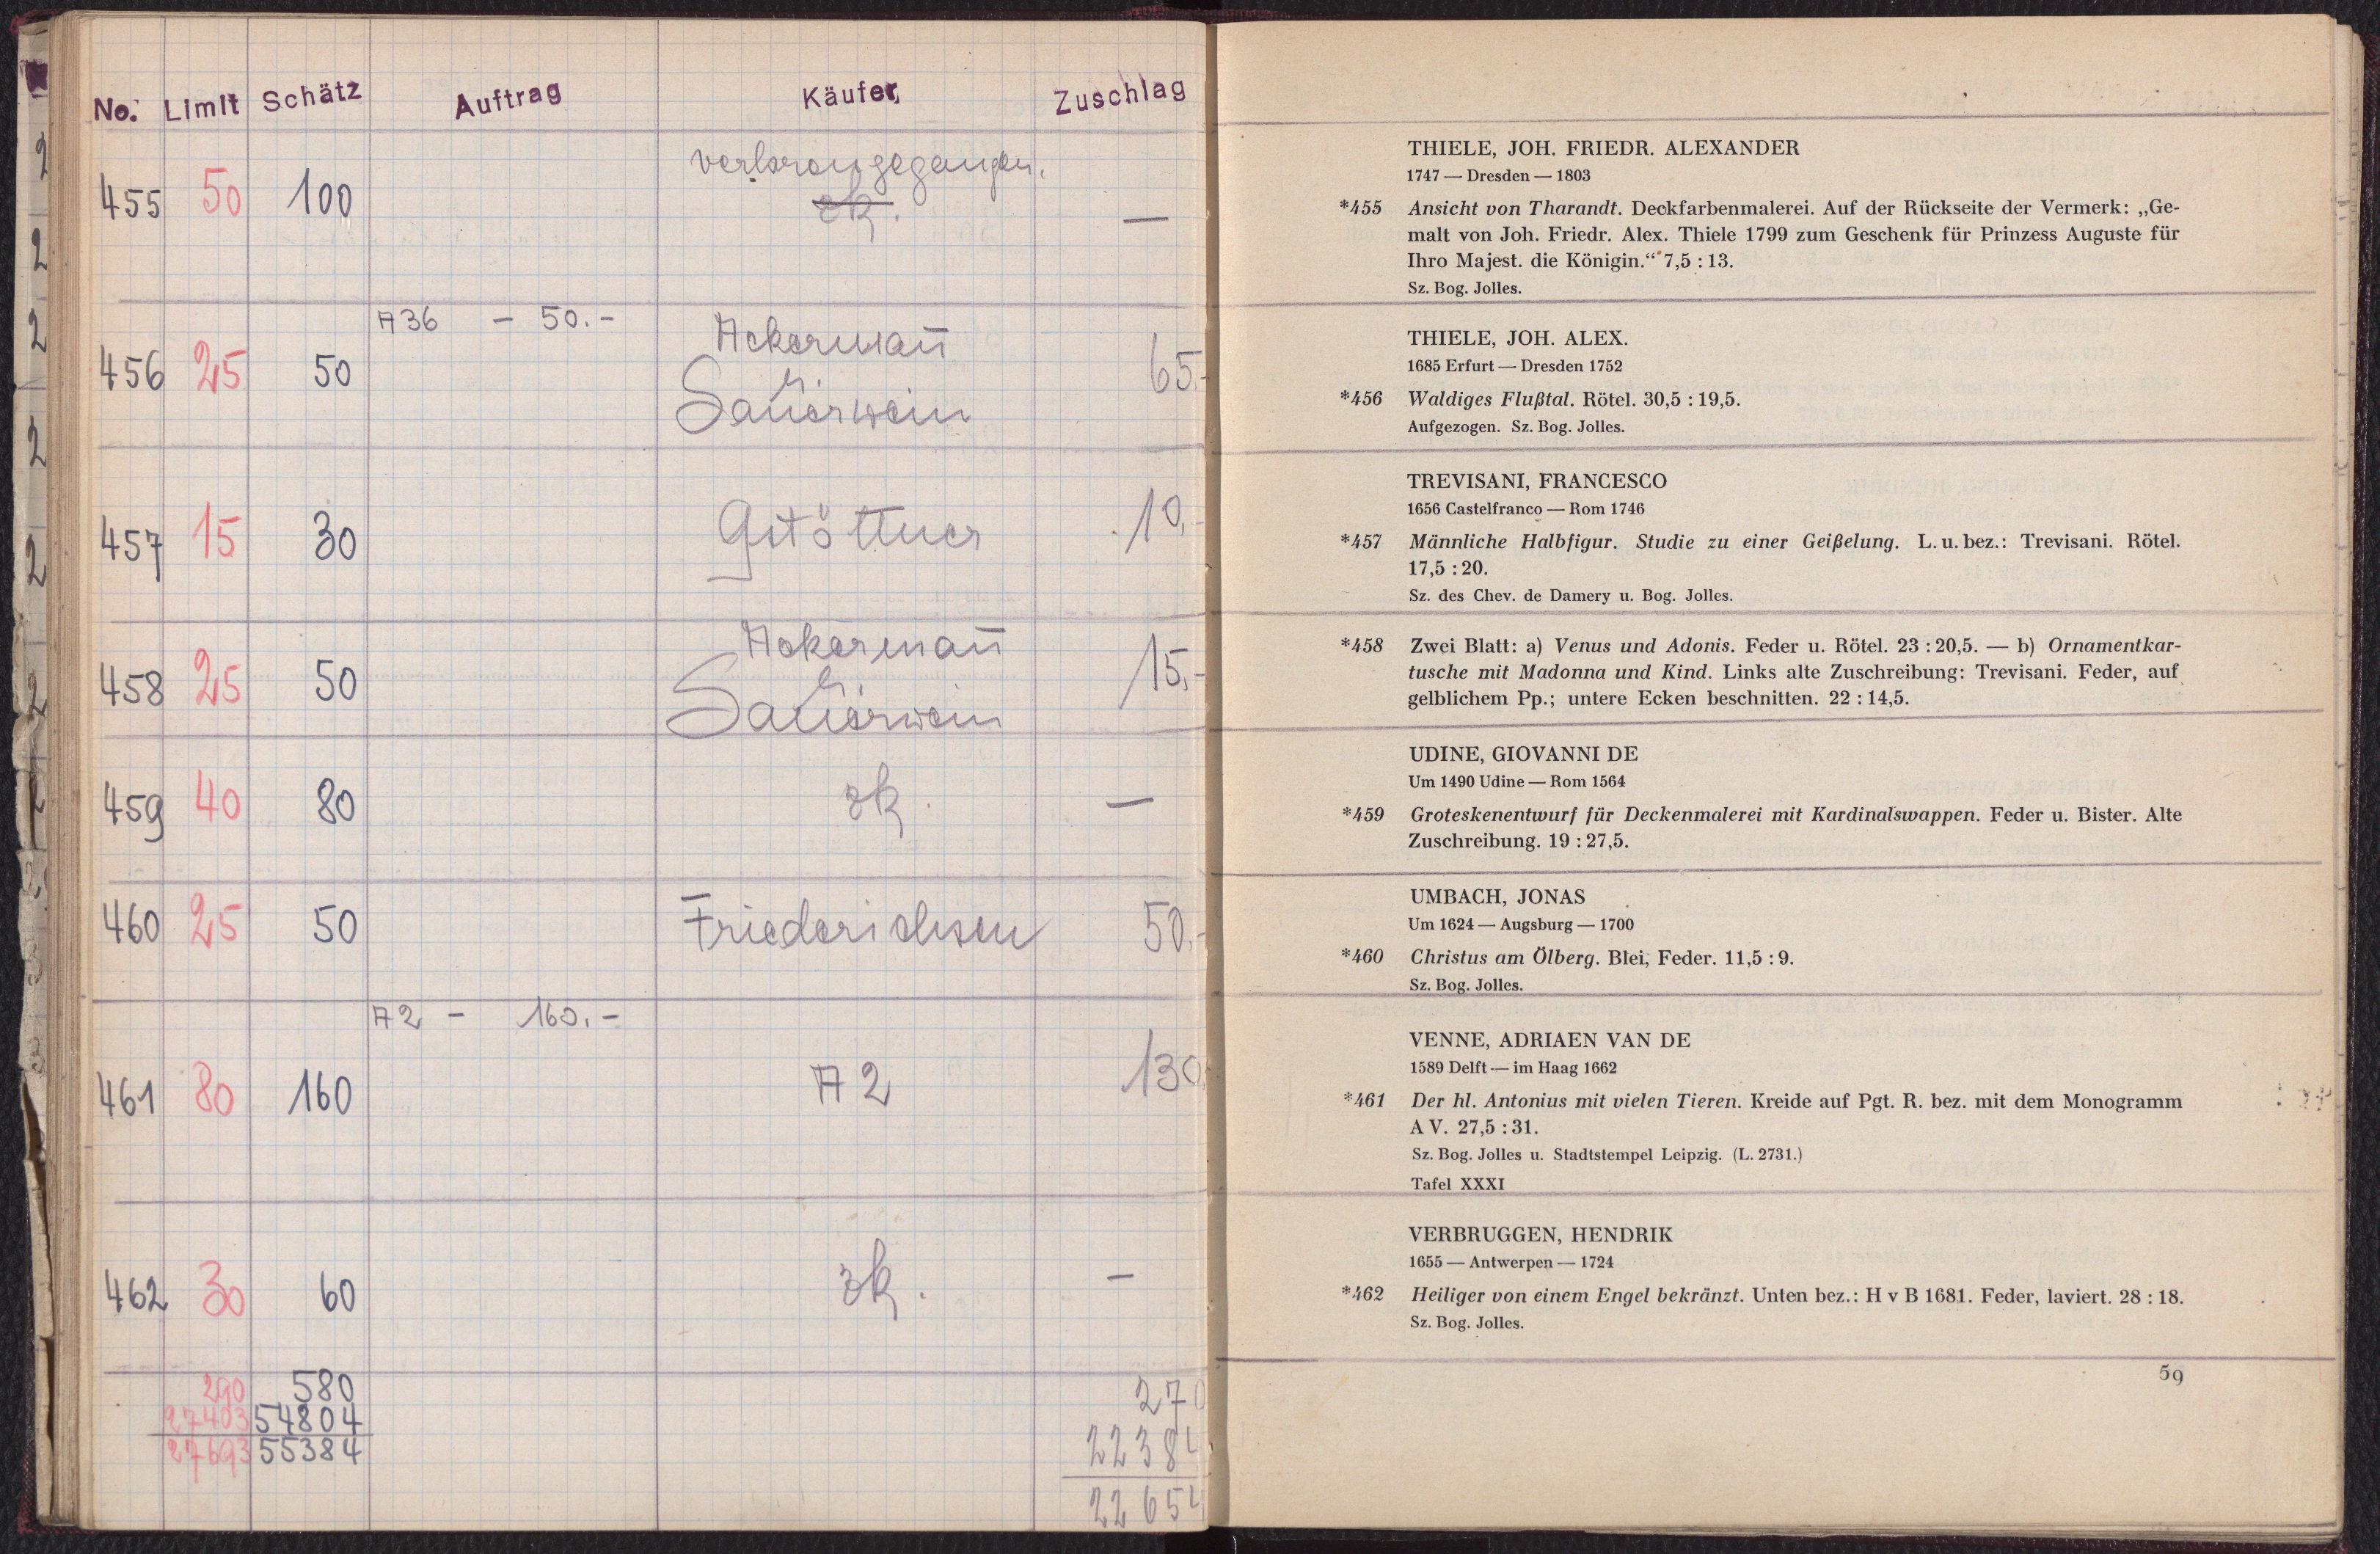 No. Limit Schätz Auftrag Käufer Zuschlag
verlorengegangen.
455 50 100 zk. —
A36 — 50.-
Ackermañ
456 25 50 & 65.-
Sauerwein
457 15 30 Gstöttner 10.-
Ackermañ
458 25 50 & 15.-
Sauerwein
459 40 80 zk. —
460 25 50 Friederichsen 50.-
A2 — 160.-
461 80 160 A2 130
462 30 60 zk. —
290 580 270
27403 54804 22384
27693 55384 22654
THIELE, JOH. FRIEDR. ALEXANDER
1747 — Dresden — 1803
*455 Ansicht von Tharandt. Deckfarbenmalerei. Auf der Rückseite der Vermerk: „Ge-
malt von Joh. Friedr. Alex. Thiele 1799 zum Geschenk für Prinzess Auguste für
Ihro Majest. die Königin.“ 7,5 : 13.
Sz. Bog. Jolles.
THIELE, JOH. ALEX.
1685 Erfurt — Dresden 1752
*456 Waldiges Flußtal. Rötel. 30,5 : 19,5.
Aufgezogen. Sz. Bog. Jolles.
TREVISANI, FRANCESCO
1656 Castelfranco — Rom 1746
*457 Männliche Halbfigur. Studie zu einer Geißelung. L. u. bez.: Trevisani. Rötel.
17,5 : 20.
Sz. des Chev. de Damery u. Bog. Jolles.
*458 Zwei Blatt: a) Venus und Adonis. Feder u. Rötel. 23 : 20,5. — b) Ornamentkar-
tusche mit Madonna und Kind. Links alte Zuschreibung: Trevisani. Feder, auf
gelblichem Pp.; untere Ecken beschnitten. 22 : 14,5.
UDINE, GIOVANNI DE
Um 1490 Udine — Rom 1564
*459 Groteskenentwurf für Deckenmalerei mit Kardinalswappen. Feder u. Bister. Alte
Zuschreibung. 19 : 27,5.
UMBACH, JONAS
Um 1624 — Augsburg — 1700
*460 Christus am Ölberg. Blei, Feder. 11,5 : 9.
Sz. Bog. Jolles.
VENNE, ADRIAEN VAN DE
1589 Delft — im Haag 1662
*461 Der hl. Antonius mit vielen Tieren. Kreide auf Pgt. R. bez. mit dem Monogramm
A V. 27,5 : 31.
Sz. Bog. Jolles u. Stadtstempel Leipzig. (L. 2731.)
Tafel XXXI
VERBRUGGEN, HENDRIK
1655 — Antwerpen — 1724
*462 Heiliger von einem Engel bekränzt. Unten bez.: H v B 1681. Feder, laviert. 28 : 18.
Sz. Bog. Jolles.
59